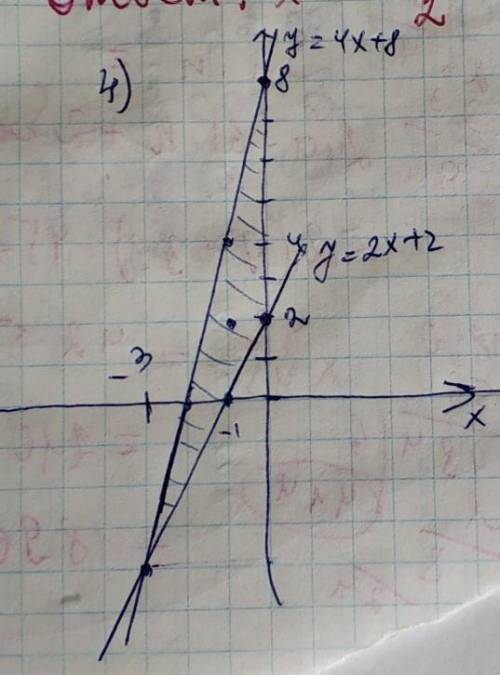 Ответ: x 2
y = 4x+8
4)
8
4
y = 2x+2
2
-3
-1
x